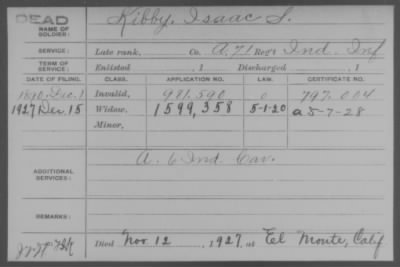 DEAD
NAME OF SOLDIER: Kibby, Isaac S.
SERVICE: Late rank, Co. A, 71 Reg't Ind. Inf
TERM OF SERVICE: Enlisted , 1 Discharged , 1
DATE OF FILING. CLASS. APPLICATION NO. LAW. CERTIFICATE NO.
1890, Dec. 1 Invalid, 981.590 797.004
1927 Dec. 15 Widow, 1599,358 5-1-20 a 5-7-28
Minor,
ADDITIONAL SERVICES: A. 6 Ind. Cav.
REMARKS:
Died Nov. 12, 1927, at El Monte, Calif